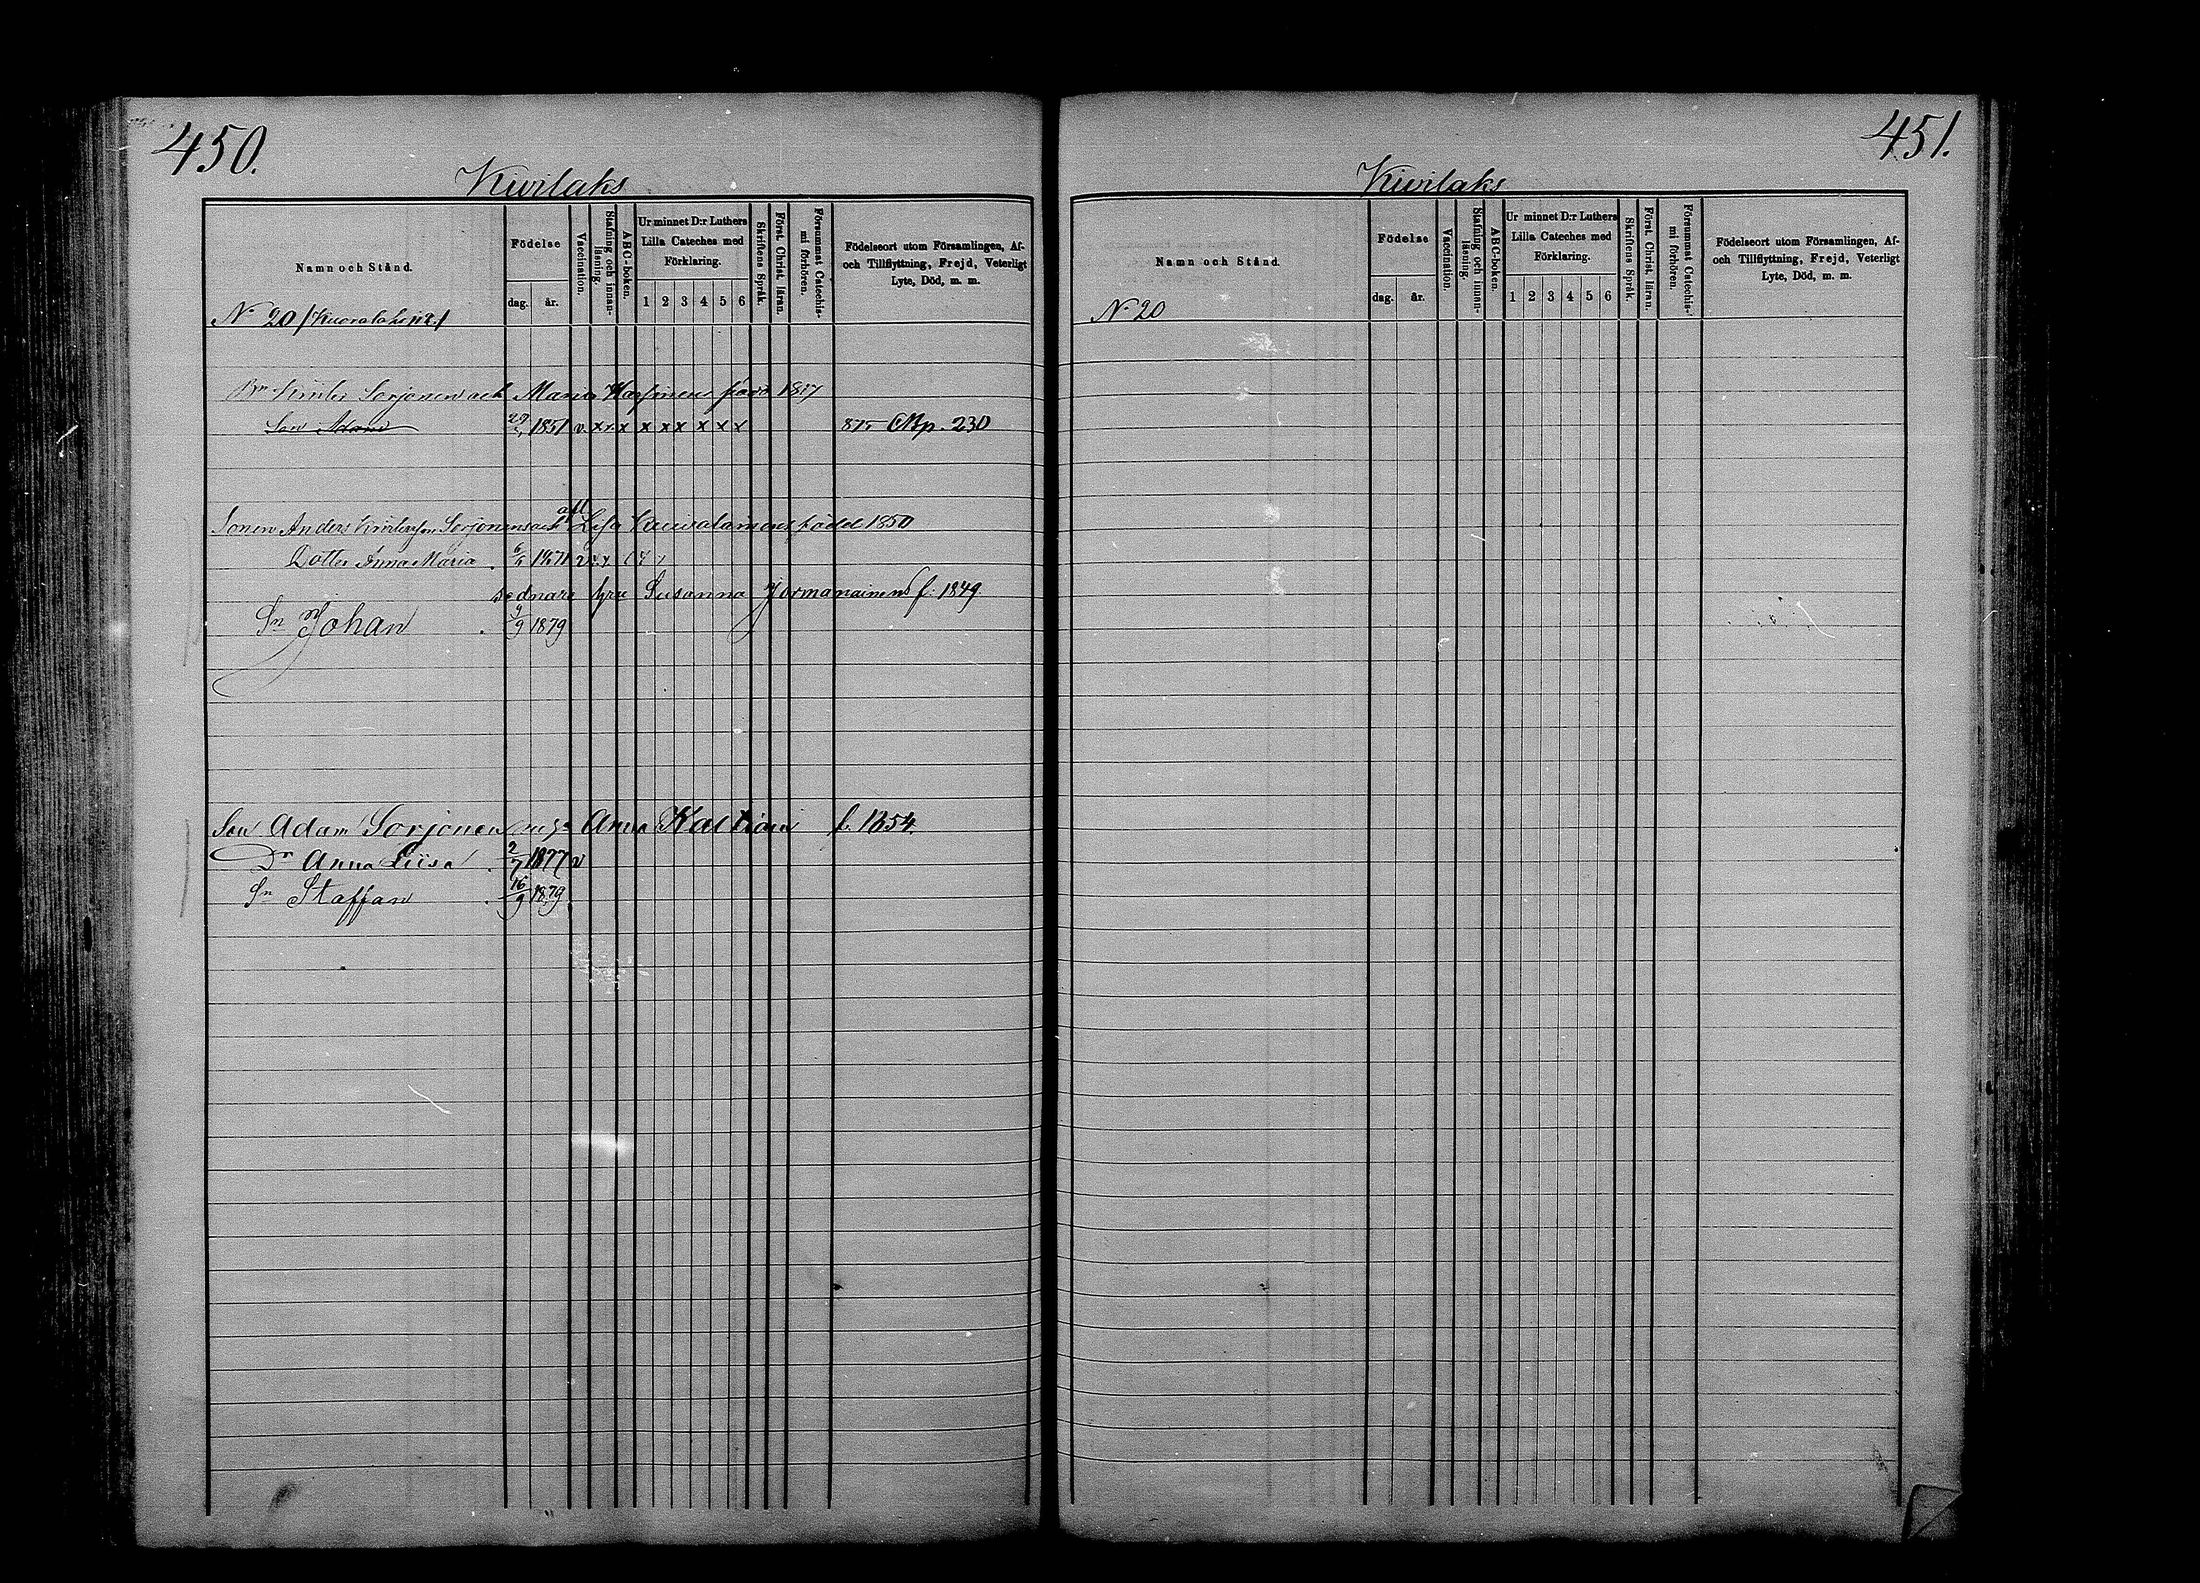 450.
Kivilaks
Namn och Stånd.
Födelse
dag. år.
Vaccination.
Stafning och innanläsning.
ABC-boken.
Ur minnet D:r Luthers Lilla Cateches med Förklaring.
1 2 3 4 5 6
Skriftens Språk.
Först. Christ. läran.
Försummat Catechismi förhören.
Födelseort utom Församlingen, Af- och Tillflyttning, Frejd, Veterligt Lyte, Död, m. m.
N 20
Sorjonen och Maria född 1817
Son Adam 1851 v x x x x x x x x x 875 Mp. 230
Sonen Anders Sorjonens och Lisa född 1850
Dotter Anna Maria 6/5 1871 v
sednare hru Susanna Jormanainens f: 1849.
Sn Johan 9/9 1879
Son Adam Sorjonen Anna f. 1854.
Dr Anna Liisa 2/7 1877 v
Sn Staffan 16/9 1879
451.
Kivilaks
Namn och Stånd.
Födelse
dag. år.
Vaccination.
Stafning och innanläsning.
ABC-boken.
Ur minnet D:r Luthers Lilla Cateches med Förklaring.
1 2 3 4 5 6
Skriftens Språk.
Först. Christ. läran.
Försummat Catechismi förhören.
Födelseort utom Församlingen, Af- och Tillflyttning, Frejd, Veterligt Lyte, Död, m. m.
N 20